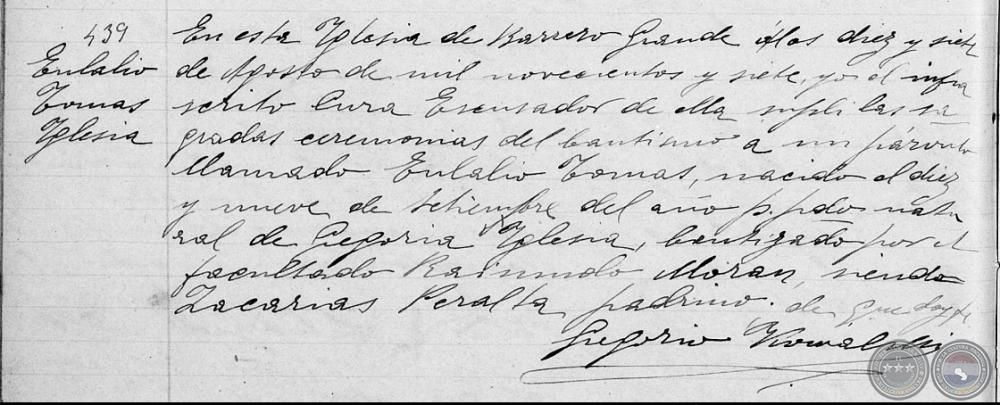 439
Eulalio
Tomas
Yglesia
En esta Yglesia de Barrero Grande á los diez y siete
de Agosto de mil novecientos y siete, yo el infra
scrito Cura Escusador de ella supli las sa
gradas ceremonias del bautismo a un párvulo
llamado Eulalio Tomas, nacido el diez
y nueve de Setiembre del año p. pdo natu
ral de Gregoria Yglesia, bautizado por el
facultado Raimundo Moran, siendo
Zacarias Peralta padrino. de que doy fe
Gregorio